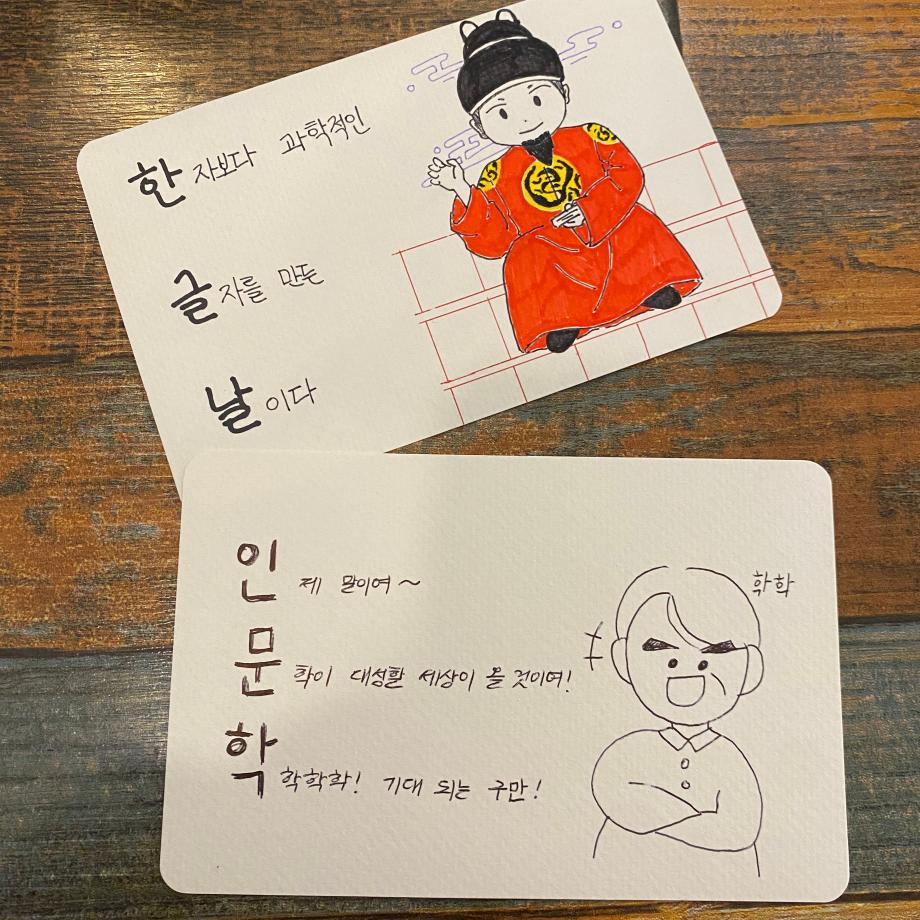 한자보다 과학적인
글자를 만든
날이다
인제 말이여~
문학이 대성할 세상이 올 것이여!
학학학학! 기대 되는 구만!
학학